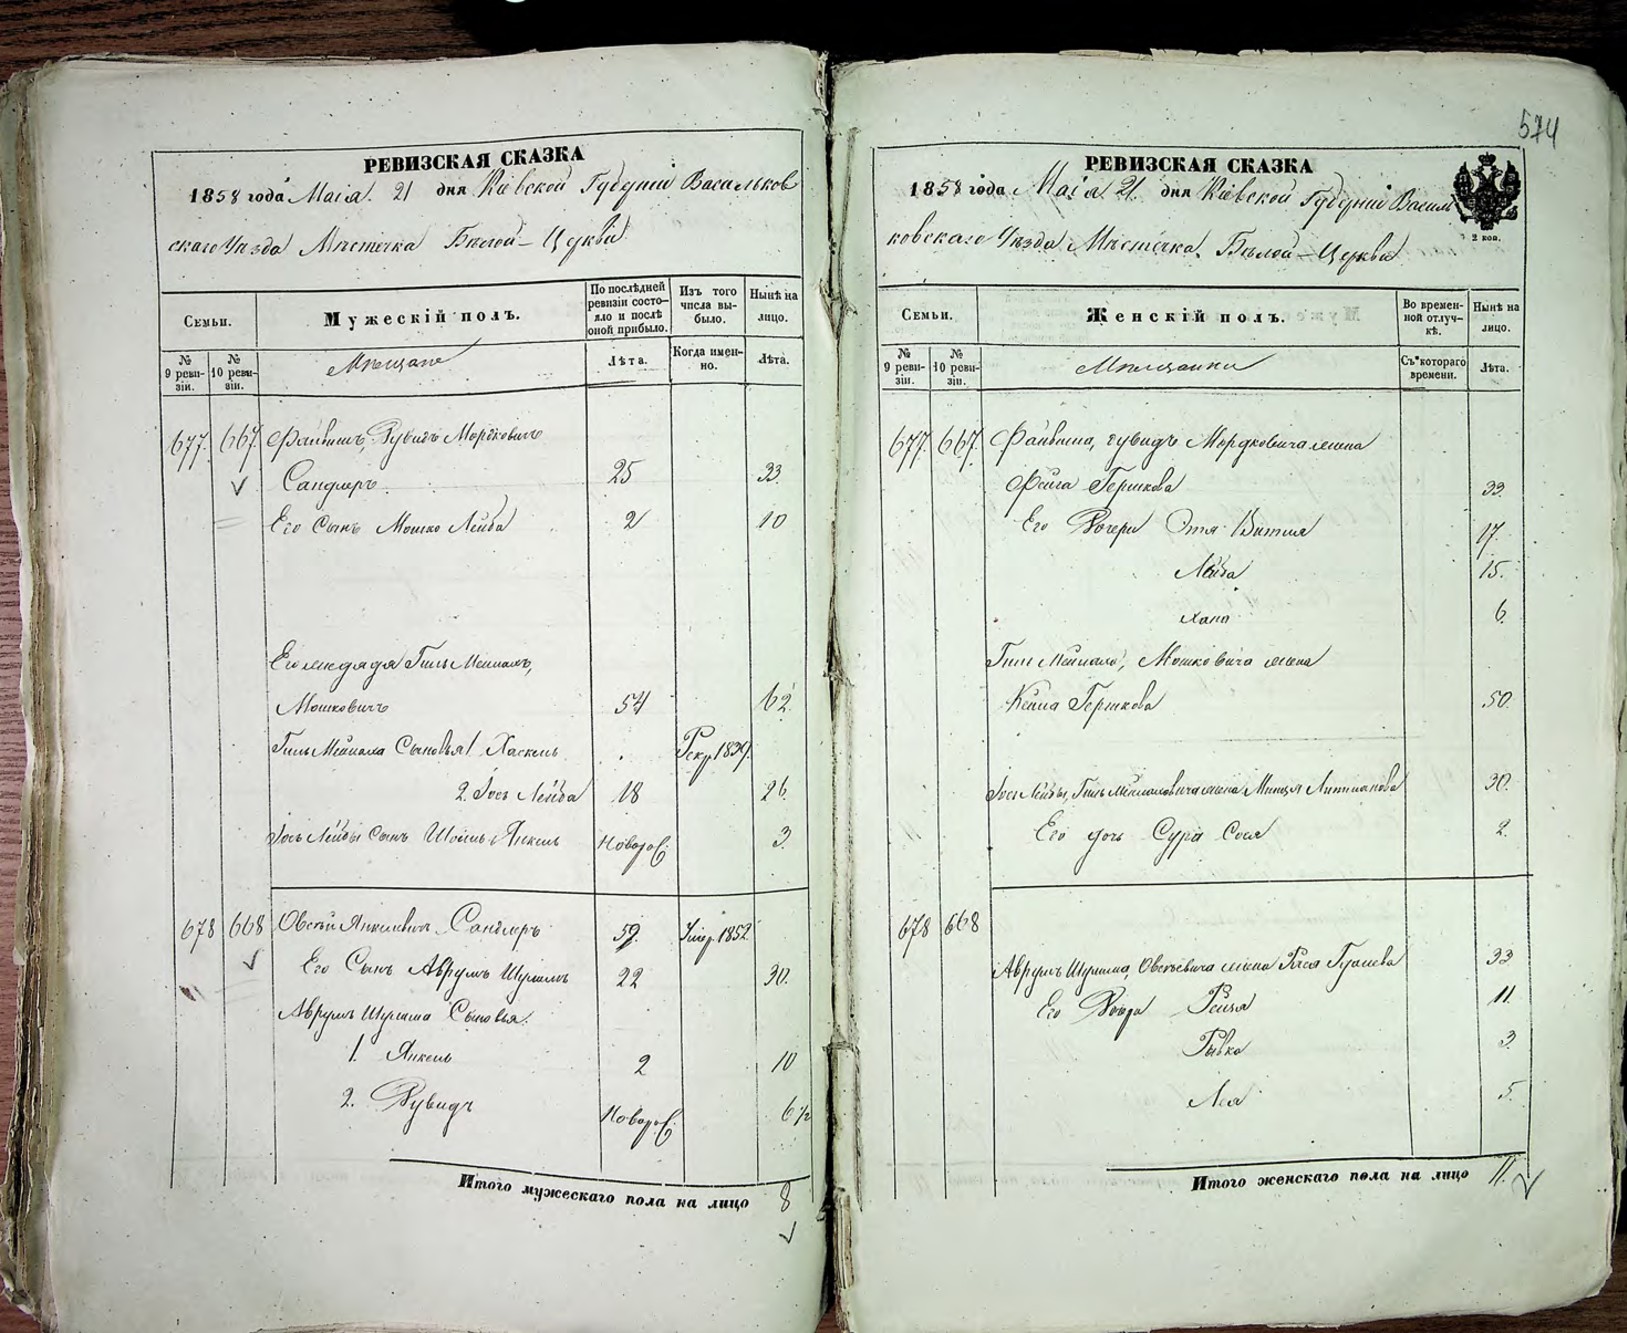 574
РЕВИЗСКАЯ СКАЗКА
1858 года Маія 21 дня Кіевской Губерніи Васильков
скаго Уѣзда Мѣстечка Бѣлой-Церкви
Семьи.
Мужескій полъ.
По послѣдней ревизіи состояло и послѣ оной прибыло.
Изъ того числа выбыло.
Нынѣ на лицо.
№ 9 ревизіи.
№ 10 ревизіи.
Мѣщане
Лѣта.
Когда именно.
Лѣта.
677. 667. Файвишъ, Дувидъ Мордковичъ
Сандлеръ. 25 33.
Его Сынъ Мошко Лейба 2 10
Гиль Мейналъ,
Мошковичъ 54 62.
Гиль Мейнала Сыновья 1. Хаскель . Рекр. 1839.
2. Іось Лейба 18 26.
Іось Лейбы Сынъ Янкель Новорож. 3.
678 668 Овсѣй Янкелевичъ Сандлеръ 59. Умер. 1852
Его Сынъ Аврумъ Шулимъ 22 30.
Аврумъ Шулима Сыновья.
1. Янкель 2 10
2. Дувидъ Новорож. 6 1/2
Итого мужескаго пола на лицо 8
РЕВИЗСКАЯ СКАЗКА
1858 года Маія 21. дня Кіевской Губерніи Василь
ковскаго Уѣзда Мѣстечка Бѣлой-Церкви
2 коп.
Семьи.
Женскій полъ.
Во временной отлучкѣ.
Нынѣ на лицо.
№ 9 ревизіи.
№ 10 ревизіи.
Мѣщанки
Съ котораго времени.
Лѣта.
677. 667. Файвиша, Дувидъ Мордковича жена
Фейга Гершкова 33.
Его Дочери Этя 17.
Лейза 15.
Хана 6.
Гиль Мейнала, Мошковича жена
Кейла Гершкова 50.
Іось Лейбы, Гиль Мейналовича жена 30.
Его дочь Сура Сося 2.
678 668
Аврумъ Шулима, Овсѣевича жена 33
Его Дочери Рейзя 11.
Рывка 3.
Лея 5.
Итого женскаго пола на лицо 11.